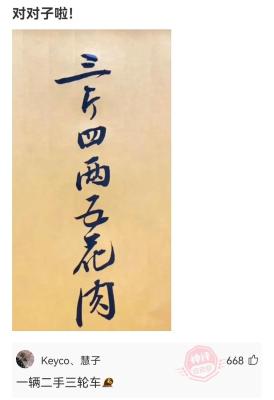 对对子啦!
三斤四两五花肉
Keyco、慧子
668
一辆二手三轮车